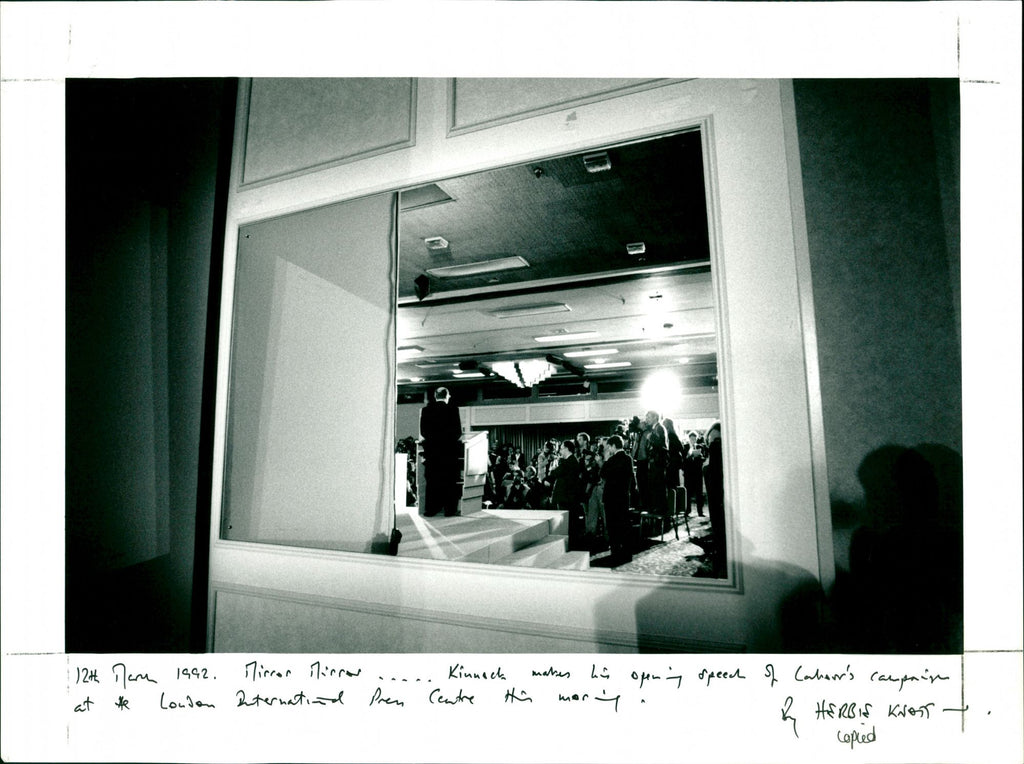 12th March 1992. Mirror Mirror ..... Kinnock makes his opening speech of Labour's campaign
at the London International Press Centre this morning.
By HERBIE KNOTT
copied